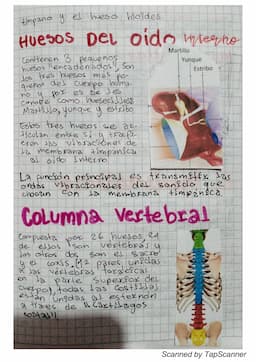 tímpano y el hueso hioides
HUESOS DEL OIDO interno
Martillo
Yunque
Estribo
Contienen 3 pequeños
huesos encadenados, son
los tres huesos más pe
queños del cuerpo huma
no y por es se les
conoce como huesecillos
Martillo, yunque y estribo
Estos tres huesos se ar
ticulan entre si y trans
las vibraciones de
la membrana timpánica
al oido interno
La función principal es transmitir las
ondas vibracionales del sonido que
chocan con la membrana timpánica.
Columna Vertebral
Compuesta por 26 huesos, 24
de ellos son vertebras y
los otros dos son el sacro
y el coxis. (12 pares unidas
a las vertebras torácicas
en la parte superior del
cuerpo), todas las costillas
están unidas al esternón
a traves de cartilagos
costal
Scanned by TapScanner